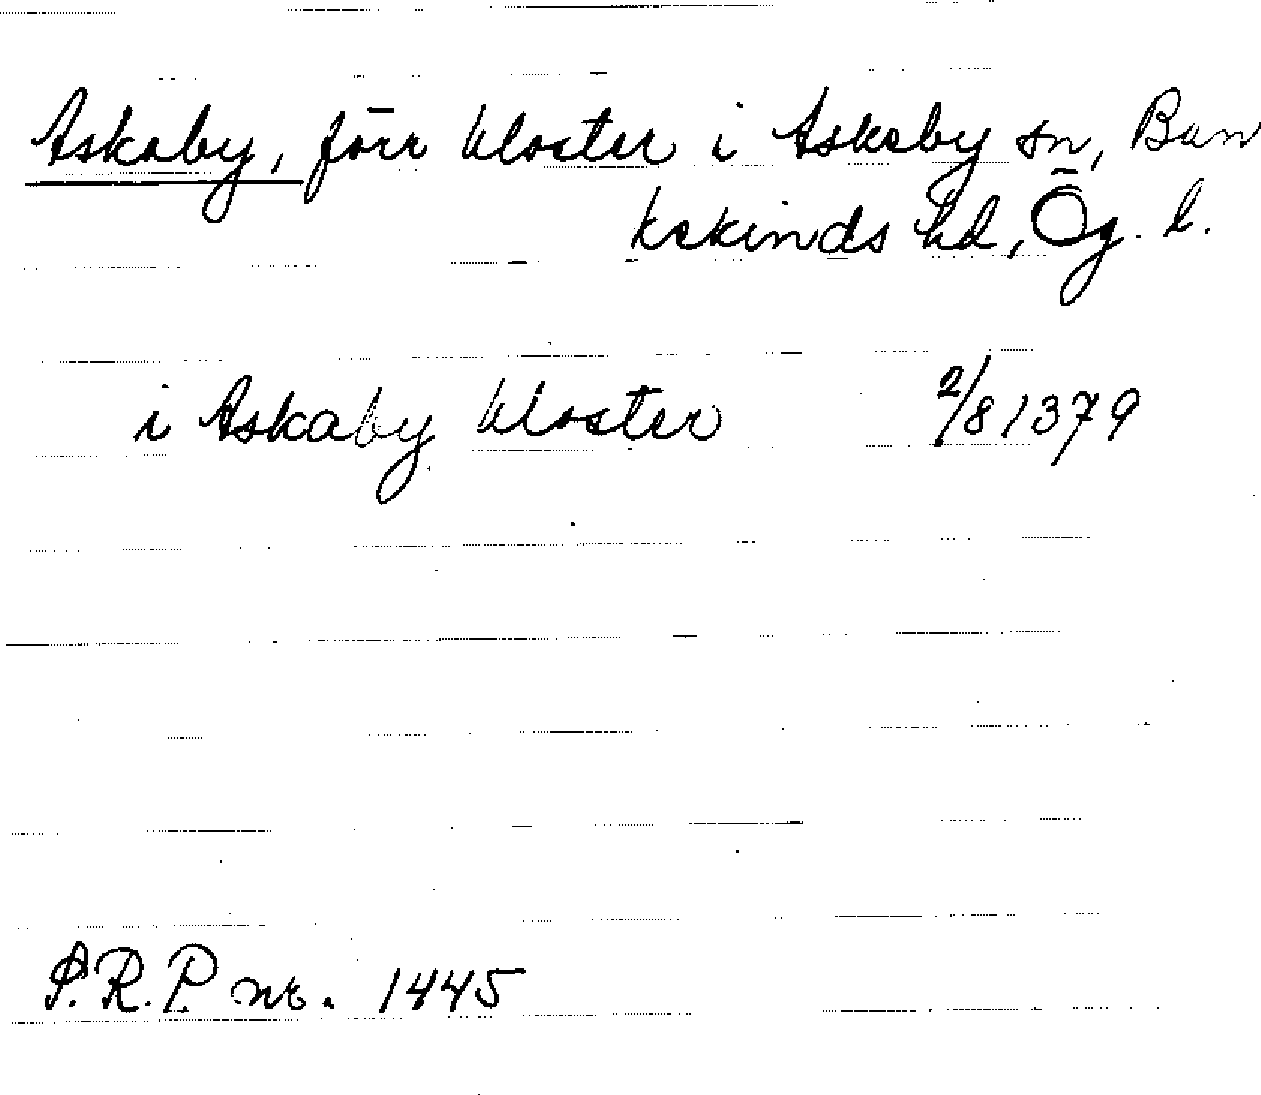 Askaby, förr kloster i Askeby sn, Ban
kekinds hd, Ög. l.
i Askaby kloster 2/8 1379
S.R.P. nr. 1445